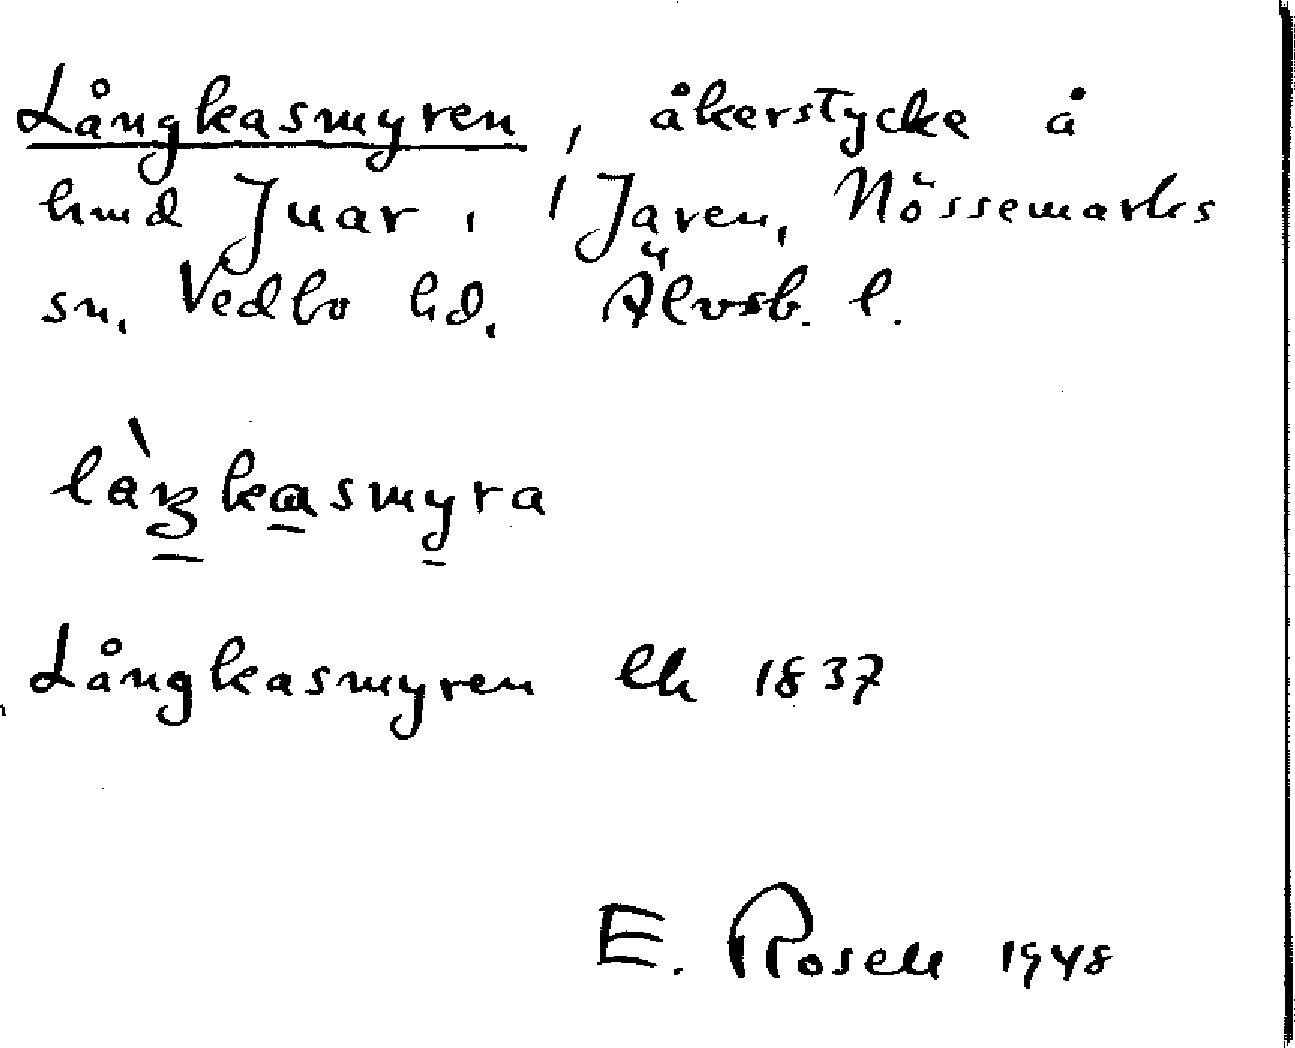 Långkasmyren, åkerstycke å
hmd Ivar, i Jaren, Nössemarks
sn, Vedbo hd, Älvsb. l.
Långkasmyren lh 1837
E. Rosell 1948